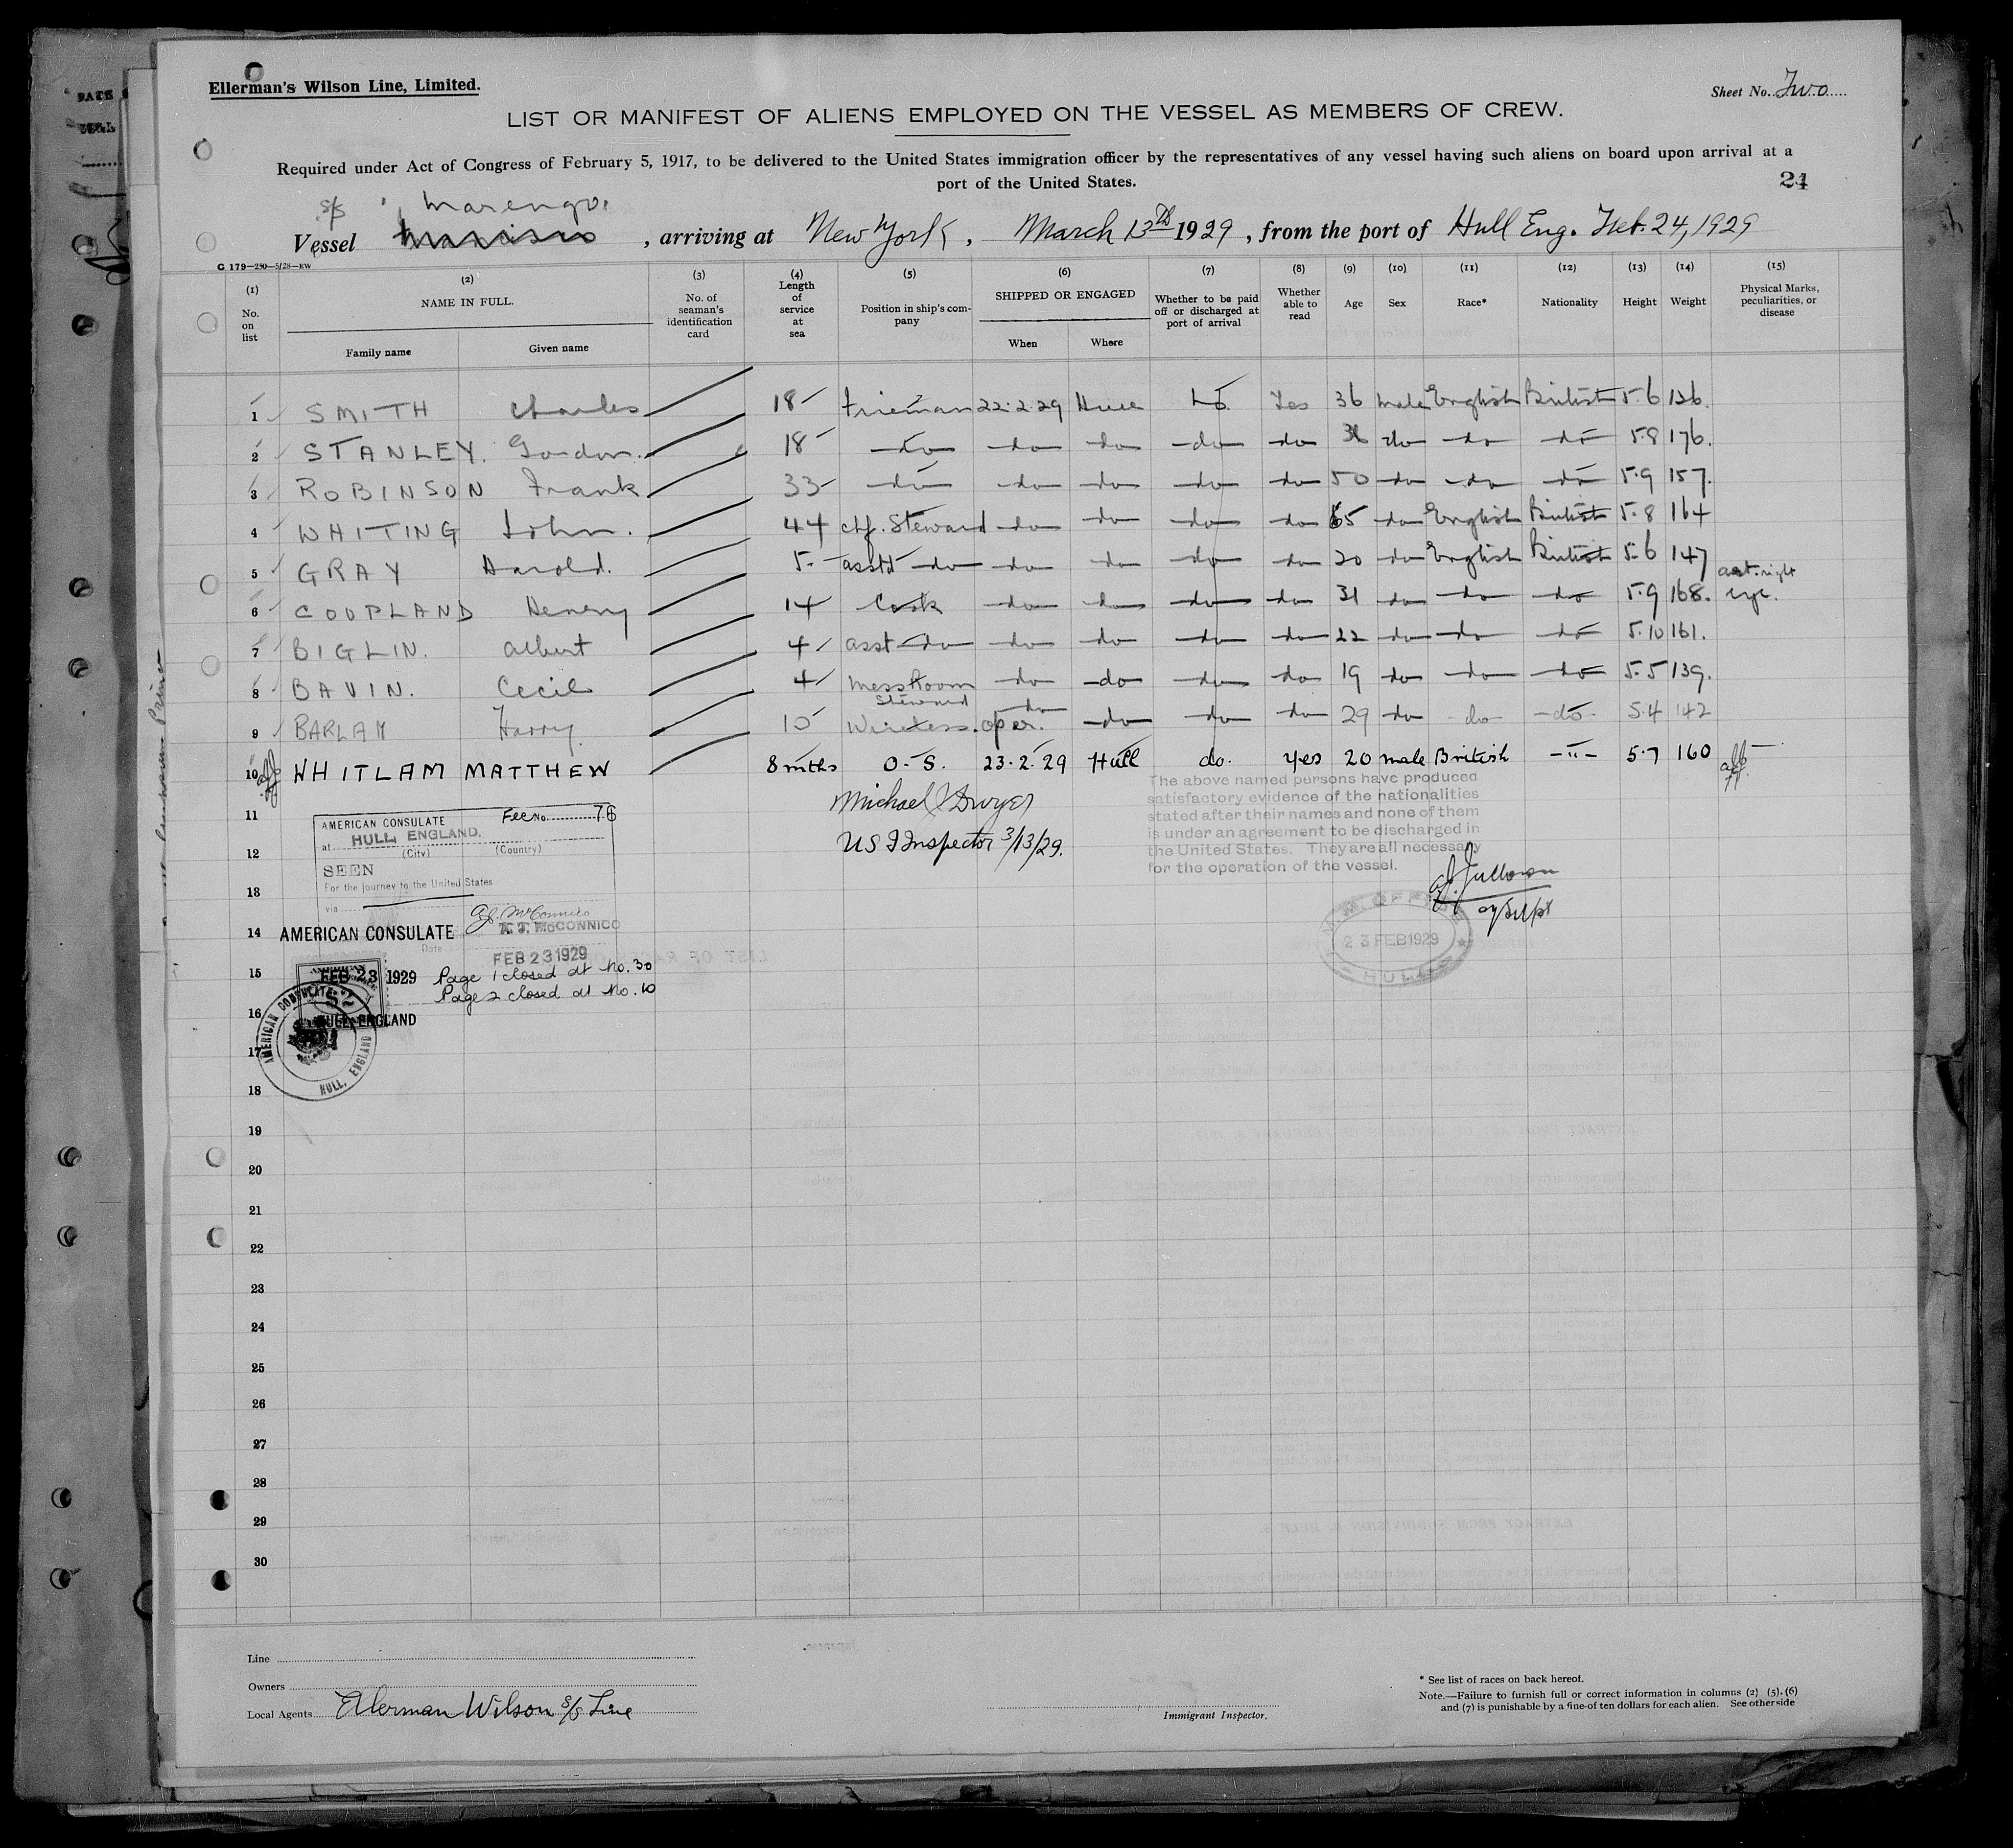 Ellerman's Wilson Line, Limited.
Sheet No. Two
LIST OR MANIFEST OF ALIENS EMPLOYED ON THE VESSEL AS MEMBERS OF CREW.
Required under Act of Congress of February 5, 1917, to be delivered to the United States immigration officer by the representatives of any vessel having such aliens on board upon arrival at a
port of the United States.
24
s/s Marengo.
Vessel , arriving at New York, March 13th 1929, from the port of Hull Eng. Feb. 24, 1929
C 179-250-5/28-EW
(1) No. on list
(2) NAME IN FULL. Family name Given name
(3) No. of seaman's identification card
(4) Length of service at sea
(5) Position in ship's company
(6) SHIPPED OR ENGAGED When Where
(7) Whether to be paid off or discharged at port of arrival
(8) Whether able to read
(9) Age
(10) Sex
(11) Race*
(12) Nationality
(13) Height
(14) Weight
(15) Physical Marks, peculiarities, or disease
1 SMITH Charles 18 Fireman 22.2.29 Hull No Yes 36 Male English British 5.6 126.
2 STANLEY. Gordon. 18 do do do do do do do do 5.8 176.
3 ROBINSON Frank 33 do do do do do 50 do do do 5.9 157.
4 WHITING John. 44 chf. Steward do do do do 65 do English British 5.8 164
5 GRAY Harold. 5 asst do do do do do 20 do English British 5.6 147
6 COUPLAND Henry 14 Cook do do do do 31 do do do 5.9 168. art. right eye.
7 BIGLIN. Albert 4 asst do do do do do 22 do do do 5.10 161.
8 BAVIN. Cecil 4 Mess Room Steward do do do do 19 do do do 5.5 139.
9 BARLAM Harry. 10 Wireless oper. do do do do 29 do do do 5.4 142
10 WHITLAM MATTHEW 8 mths O.S. 23.2.29 Hull do. yes 20 male British -"- 5.7 160
11
12
13
14
15
16
17
18
19
20
21
22
23
24
25
26
27
28
29
30
Michael J Dwyer
US I Inspector 3/13/29.
The above named persons have produced
satisfactory evidence of the nationalities
stated after their names and none of them
is under an agreement to be discharged in
the United States. They are all necessary
for the operation of the vessel.
AMERICAN CONSULATE Fee No. 76
at HULL, ENGLAND.
(City) (Country)
SEEN
For the journey to the United States
via
A. J. McConnico
A. J. McCONNICO
AMERICAN CONSULATE
Date FEB 23 1929
FEB 23 1929
Page 1 closed at No. 30
Page 2 closed at No. 10
$2
HULL, ENGLAND
AMERICAN CONSULATE
HULL, ENGLAND
23 FEB 1929
HULL
Line
Owners
Local Agents Ellerman Wilson s/s Line
Immigrant Inspector.
* See list of races on back hereof.
Note.—Failure to furnish full or correct information in columns (2) (5), (6)
and (7) is punishable by a fine of ten dollars for each alien. See other side